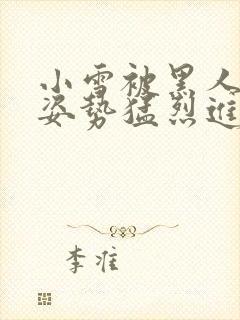 小雪被黑人
姿势猛烈进
李准